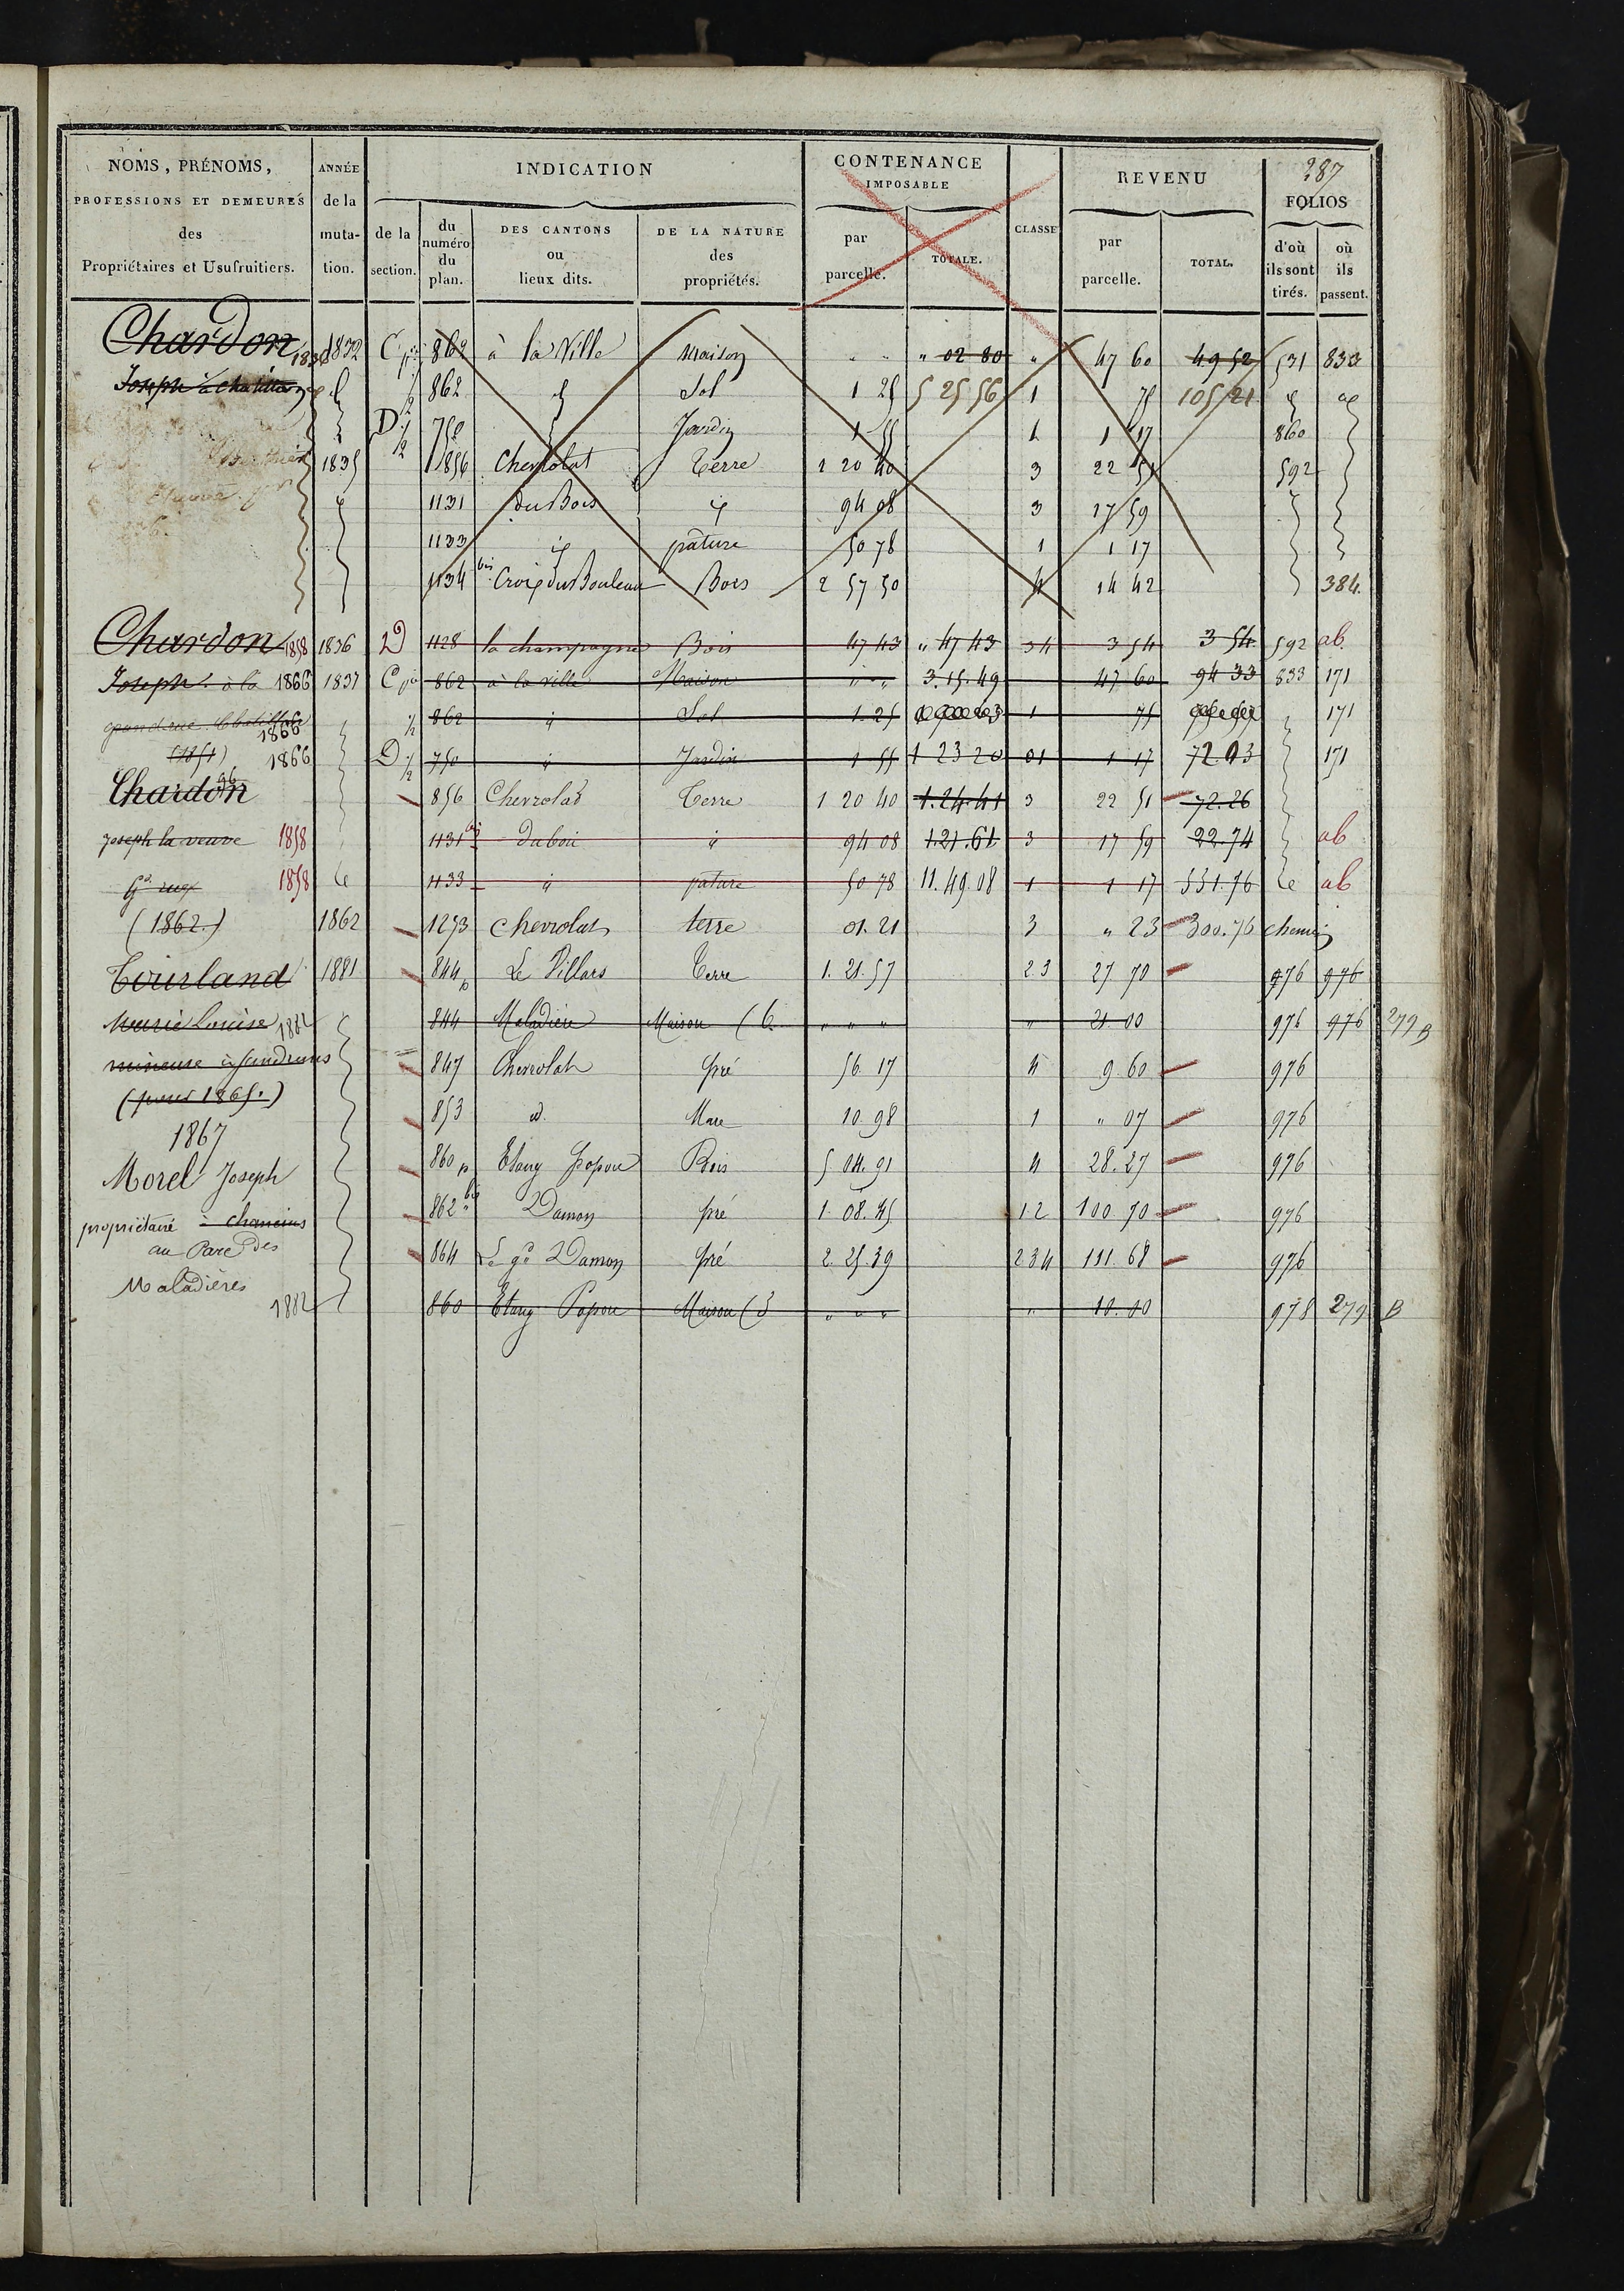 287
NOMS, PRÉNOMS, PROFESSIONS ET DEMEURES des Propriétaires et Usufruitiers.
ANNÉE de la mutation.
INDICATION
de la section.
du numéro du plan.
DES CANTONS ou lieux dits.
DE LA NATURE des propriétés.
CONTENANCE IMPOSABLE
par parcelle.
TOTALE.
CLASSE
REVENU
par parcelle.
TOTAL.
FOLIOS
d'où ils sont tirés.
où ils passent.
Chardon 1832 C 862 à la Ville Maison " " " 02 80 " 47 60 49 52 531 833
Joseph à 862 Sol 1 25 5 25 56 1 75 105 21
D 1/2 750 Jardin 1 55 1 1 17 860
1835 856 Chevrolat Terre 1 20 40 3 22 51 592
1131 du Bois 94 08 3 17 59
1133 pature 50 78 1 1 17
1134 bis Croix du Bouleau Bois 2 57 50 4 14 42 384.
Chardon 1858 1836 D 1128 la champagne Bois 47 43 " 47 43 34 3 54 3 54 592 ab.
Joseph à la 1866 1837 C 862 à la ville Maison " " 3.15.49 47 60 94 33 833 171
grand rue 1866 1/2 862 Sol 1.25 1 75 171
(1851) 1866 D 1/2 750 Jardin 1 55 1 23 20 01 1 17 72.03 171
Chardon 856 Chevrolat Terre 1 20 40 1.24.41 3 22 51 72.26
Joseph la veuve 1858 1131 bis Du bois 94 08 1.21.61 3 17 59 22.74 ab
Gde rue 1858 1133 pature 50 78 11.49.08 1 1 17 331.76 ab
(1862.) 1862 1273 Chevrolat terre 01.21 3 " 23 300.76 chemin
Tourland 1881 844 p Le Villars Terre 1.21.57 2 3 27 70 976 976
Marie Louise 1882 844 Maladière Maison (6 " " " " 21.00 976 976 279 B
mineure à 847 Chevrolat pré 56.17 4 9.60 976
(pour 1865.) 853 id. Mare 10.98 1 " 07 976
1867
Morel Joseph 860 p Etang Popon Bois 5 04.91 4 28.27 976
propriétaire 862 bis Damon pré 1.08.45 1 2 100 70 976
au Parc des 864 Le gd Damon pré 2.25.39 2 3 4 111 68 976
Maladières
1882 860 Etang Popon Maison (3 " " " " 10.00 978 279 B